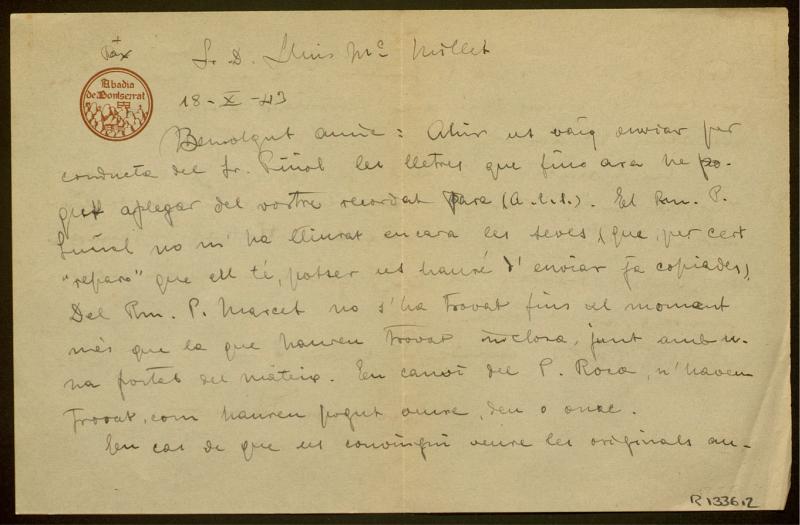 Pax
Sr. D. Lluis Mª Millet
Abadia
de Montserrat
18-X-43
Benvolgut amic: Ahir us vaig enviar per
conducta del Sr. Piñol les lletres que fins ara he po-
gut aplegar del vostre recordat Pare (A.C.S.). El Rm. P.
Suñol no m'ha lliurat encara les seves (que, per cert
"reparo" que ell té, potser us hauré d'enviar ja copiades).
Del Rm. P. Marcet no s'ha trovat fins al moment
més que la que hauren trovat inclosa, junt amb u-
na postal del mateix. En canvi del P. Roca, n'havem
trovat, com hauren pogut veure, deu o onze.
En cas de que us convingui veure les originals au-
R 13362